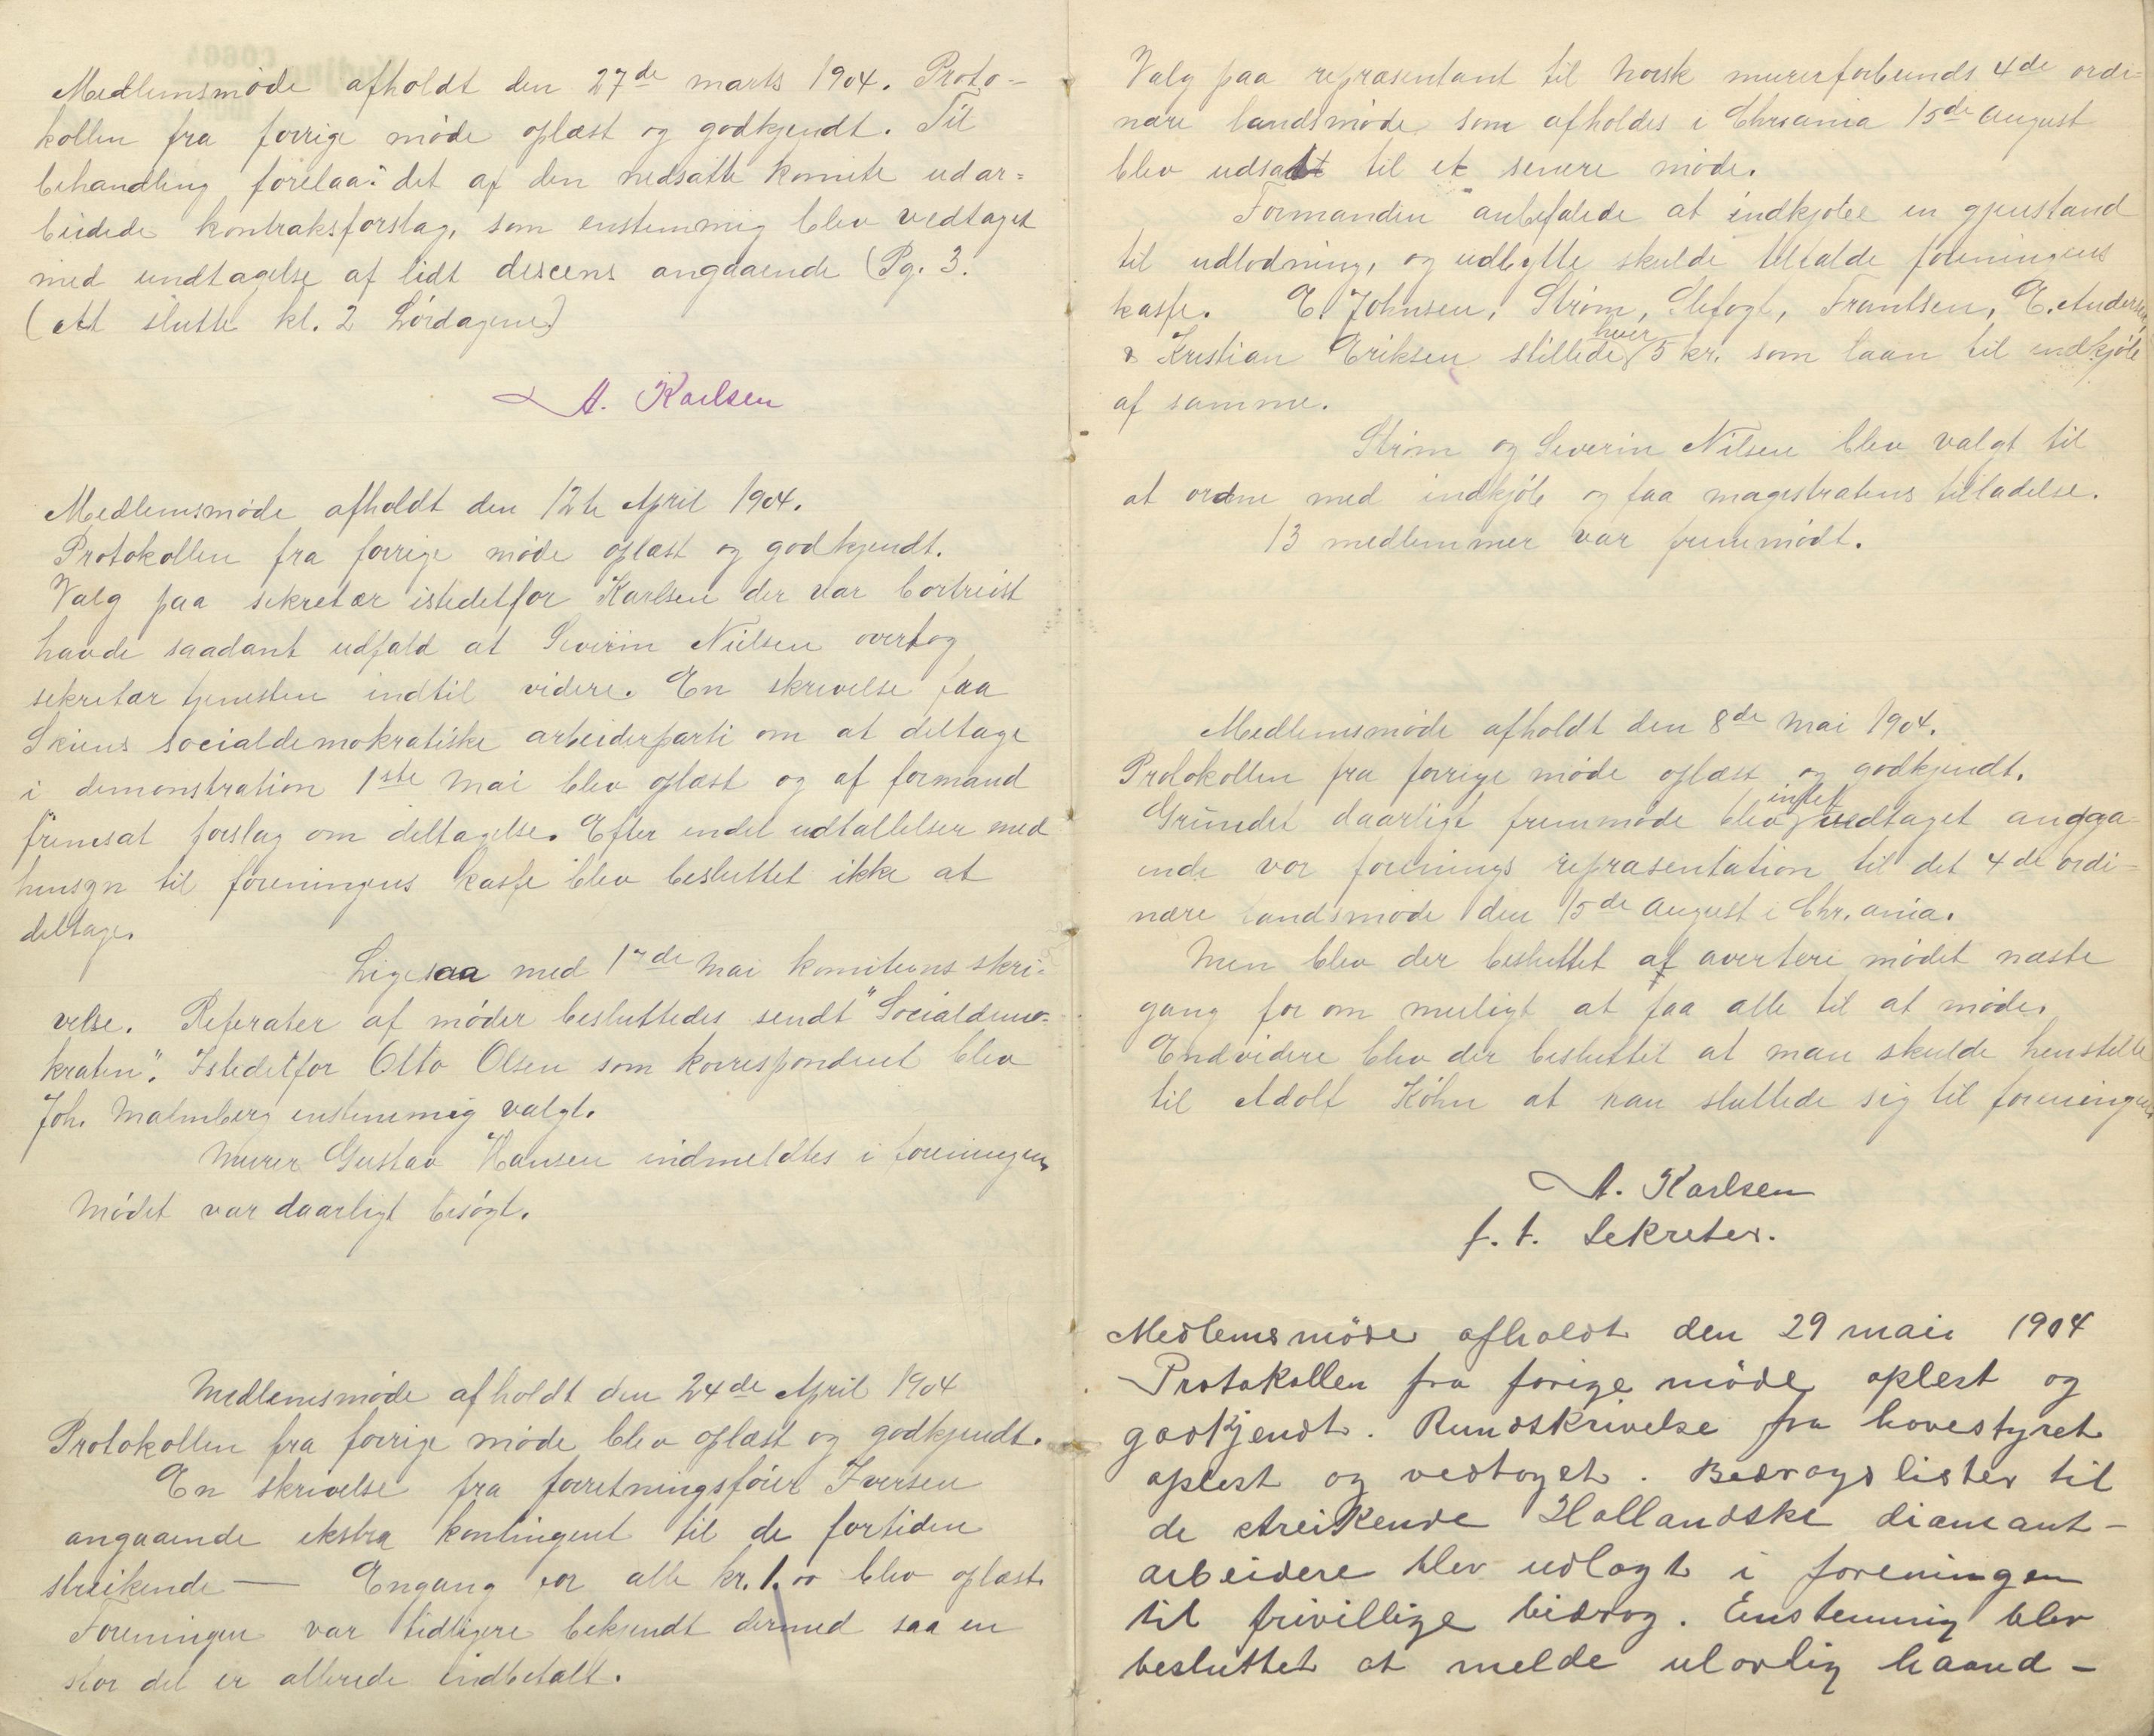 Medlemsmøde afholdt den 27de marts 1904. Proto-
kollen fra forrige møde oplæst og godkjendt. Til
behandling forelaa: det af den nedsatte komite udar-
beidede kontraksforslag, som enstemmig blev vedtaget
med undtagelse af lidt descens angaaende (Pg. 3.
(At slutte kl. 2 Lørdagene)
A. Karlsen
Medlemsmøde afholdt den 12te April 1904.
Protokollen fra forrige møde oplæst og godkjendt.
Valg paa sekretær istedetfor Karlsen der var bortreist
havde saadant udfald at Severin Nielsen overtog
sekretær tjenesten indtil videre. En skrivelse fra
Skiens socialdemokratiske arbeiderparti om at deltage
i demonstration 1ste Mai blev oplæst og af formand
fremsat forslag om deltagelse. Efter endel udtallelser med
hensyn til foreningens kasse blev besluttet ikke at
deltage.
Ligesaa med 17de Mai komiteens skri-
velse. Referater af møder besluttedes sendt "Socialdemo-
kraten". Istedetfor Otto Olsen som korrespondent blev
Joh. Malmberg enstemmig valgt.
Murer Gustav Hansen indmeldtes i foreningen
Mødet var daarligt besøgt.
Medlemsmøde afholdt den 24de April 1904
Protokollen fra forrige møde blev oplæst og godkjendt.
En skrivelse fra forretningsfører Iversen
angaaende ekstra kontingent til de fortiden
streikende — Engang for alle kr. 1.00 blev oplæst.
Foreningen var tidligere bekjendt dermed saa en
stor del er allerede indbetalt.
Valg paa repræsentant til Norsk murerforbunds 4de ordi-
nære landsmøde som afholdes i Chrsania 15de August
blev udsatt til et senere møde.
Formanden anbefalede at indkjøbe en gjenstand
til udlodning, og udbytte skulde tilfalde foreningens
kasse. E. Johnsen, Strøm, Frantsen, E. Andersen,
& Kristian Eriksen stillede hver 5 kr. som laan til indkjøb
af samme.
Strøm og Severin Nilsen blev valgt til
at ordne med indkjøb og faa magistratens tilladelse.
13 medlemmer var fremmødt.
Medlemsmøde afholdt den 8de Mai 1904.
Protokollen fra forrige møde oplæst og godkjendt.
Grundet daarligt fremmøde blev intet vedtaget angaa-
ende vor forenings repræsentation til det 4de ordi-
nære landsmøde den 15de August i Chr.ania.
Men blev der besluttet at avertere mødet næste
gang for om muligt at faa alle til at møde.
Endvidere blev der besluttet at man skulde henstille
til Adolf Köhn at han sluttede sig til foreningen.
A. Karlsen
f. t. Sekreter.
Medlemsmøde afholdt den 29 mai 1904
Protokollen fra forige møde oplest og
godkjendt. Rundskrivelse fra hovestyret
oplest og vedtaget. Bedragslister til
de streikende Hollandske diamant-
arbeidere blev udlagt i foreningen
til frivillige bidrag. Enstemmig blev
besluttet at melde ulovlig haand-